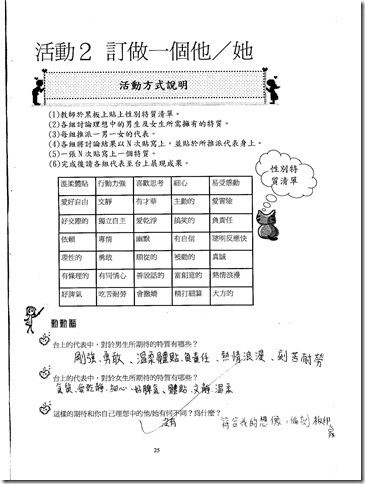 活動2 訂做一個他／她
活動方式說明
(1)教師於黑板上貼上性別特質清單。
(2)各組討論理想中的男生及女生所需擁有的特質。
(3)每組推派一男一女的代表。
(4)各組將討論結果以N次貼寫上，並貼於所推派代表身上。
(5)一張N次貼寫上一個特質。
(6)完成後請各組代表至台上展現成果。
性別特
質清單
溫柔體貼 行動力強 喜歡思考 細心 易受感動
愛好自由 文靜 有才華 主動的 愛冒險
好交際的 獨立自主 愛乾淨 搞笑的 負責任
依賴 專情 幽默 有自信 聰明反應快
理性的 勇敢 順從的 被動的 真誠
有條理的 有同情心 善說話的 富創意的 熱情浪漫
好脾氣 吃苦耐勞 會撒嬌 精打細算 大方的
動動腦
台上的代表中，對於男生所期待的特質有哪些？
剛強、勇敢、溫柔體貼、負責任、熱情浪漫、刻苦耐勞
台上的代表中，對於女生所期待的特質有哪些？
愛乾靜、細心、好脾氣、體貼、文靜、溫柔
這樣的期待和你自己理想中的他/她有何不同？為什麼？
沒有 符合我的想像，偏刻板印象
25